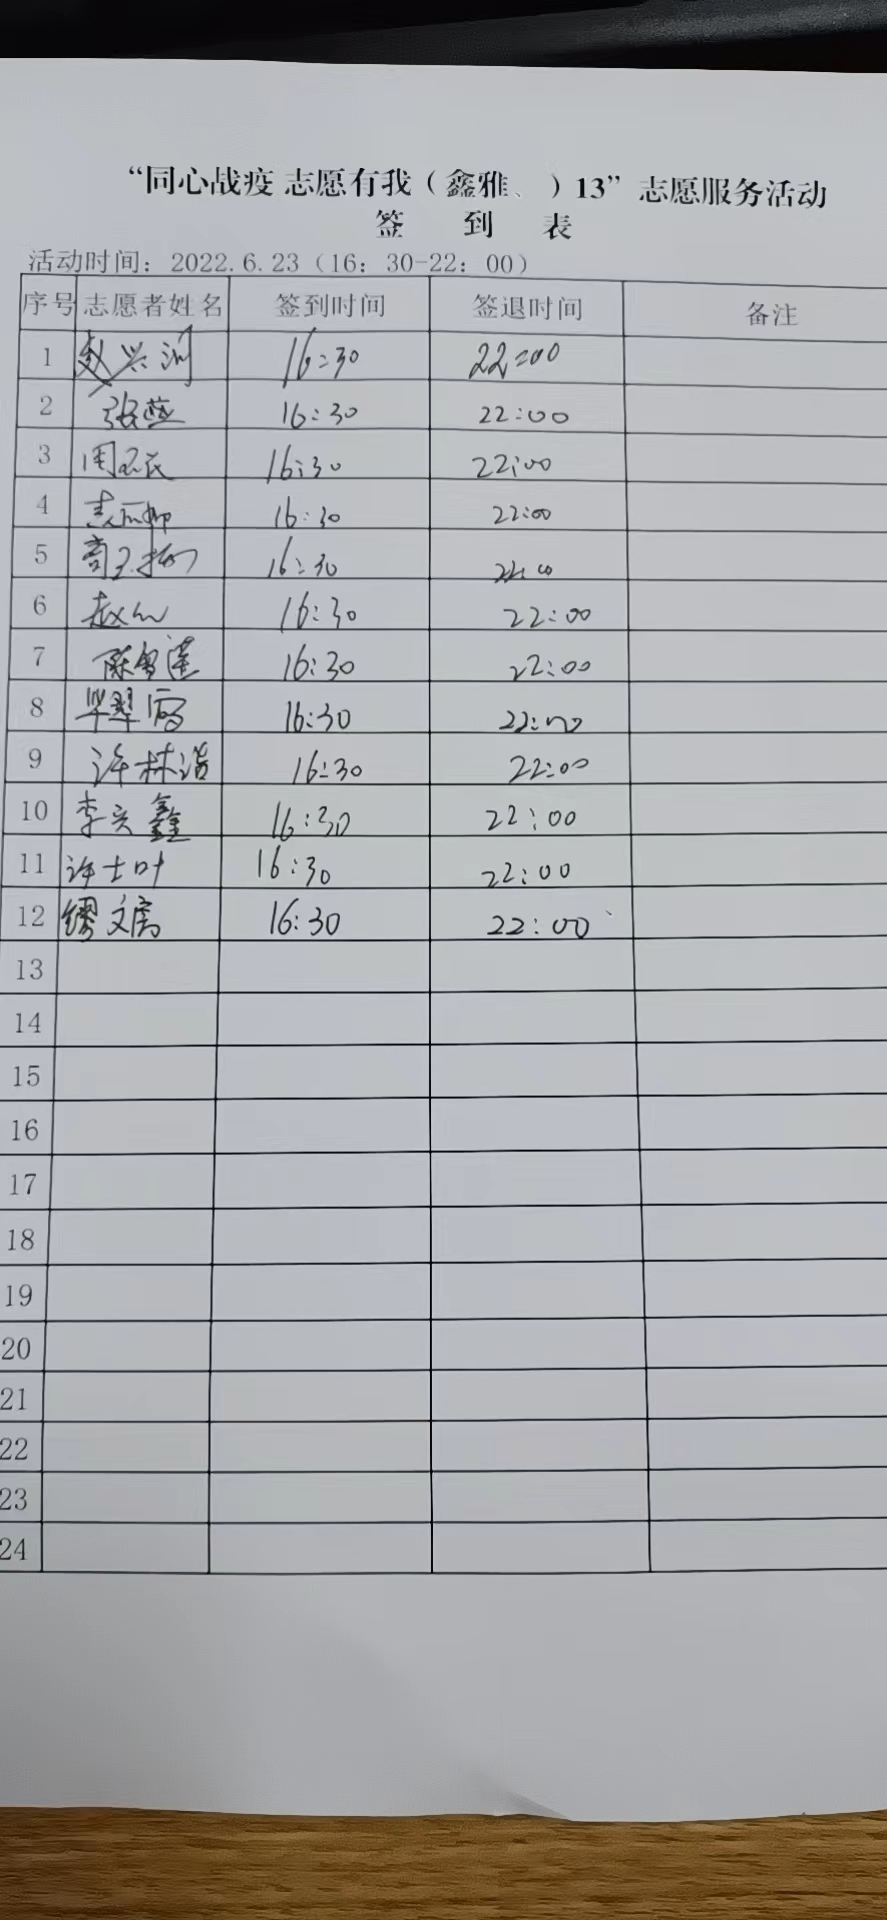 “同心战疫 志愿有我（鑫雅、 ）13”志愿服务活动
签 到 表
活动时间：2022.6.23（16：30-22：00）
序号 志愿者姓名 签到时间 签退时间 备注
1 赵兴润 16:30 22:00
2 张燕 16:30 22:00
3 周 16:30 22:00
4 16:30 22:00
5 16:30 22:00
6 赵 16:30 22:00
7 陈雪莲 16:30 22:00
8 毕翠 16:30 22:00
9 许林浩 16:30 22:00
10 李文鑫 16:30 22:00
11 许士叶 16:30 22:00
12 缪文高 16:30 22:00
13
14
15
16
17
18
19
20
21
22
23
24